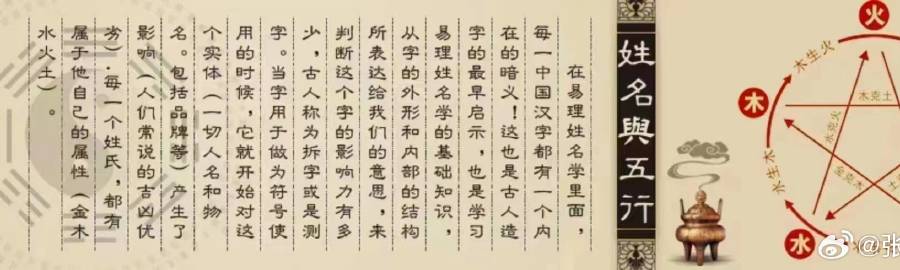 姓名與五行
在易理姓名学里面，
每一中国汉字都有一个内
在的暗义！这也是古人造
字的最早启示，也是学习
易理姓名学的基础知识，
从字的外形和内部的结构
所表达给我们的意思，来
判断这个字的影响力有多
少，古人称为拆字或是测
字。当字用于做为符号使
用的时候，它就开始对这
个实体（一切人名和物
名。包括品牌等）产生了
影响（人们常说的吉凶优
劣）.每一个姓氏，都有
属于他自己的属性（金木
水火土）。
火
木生火
木
木克土
水克火
金克木
土
水生木
水
火
@张